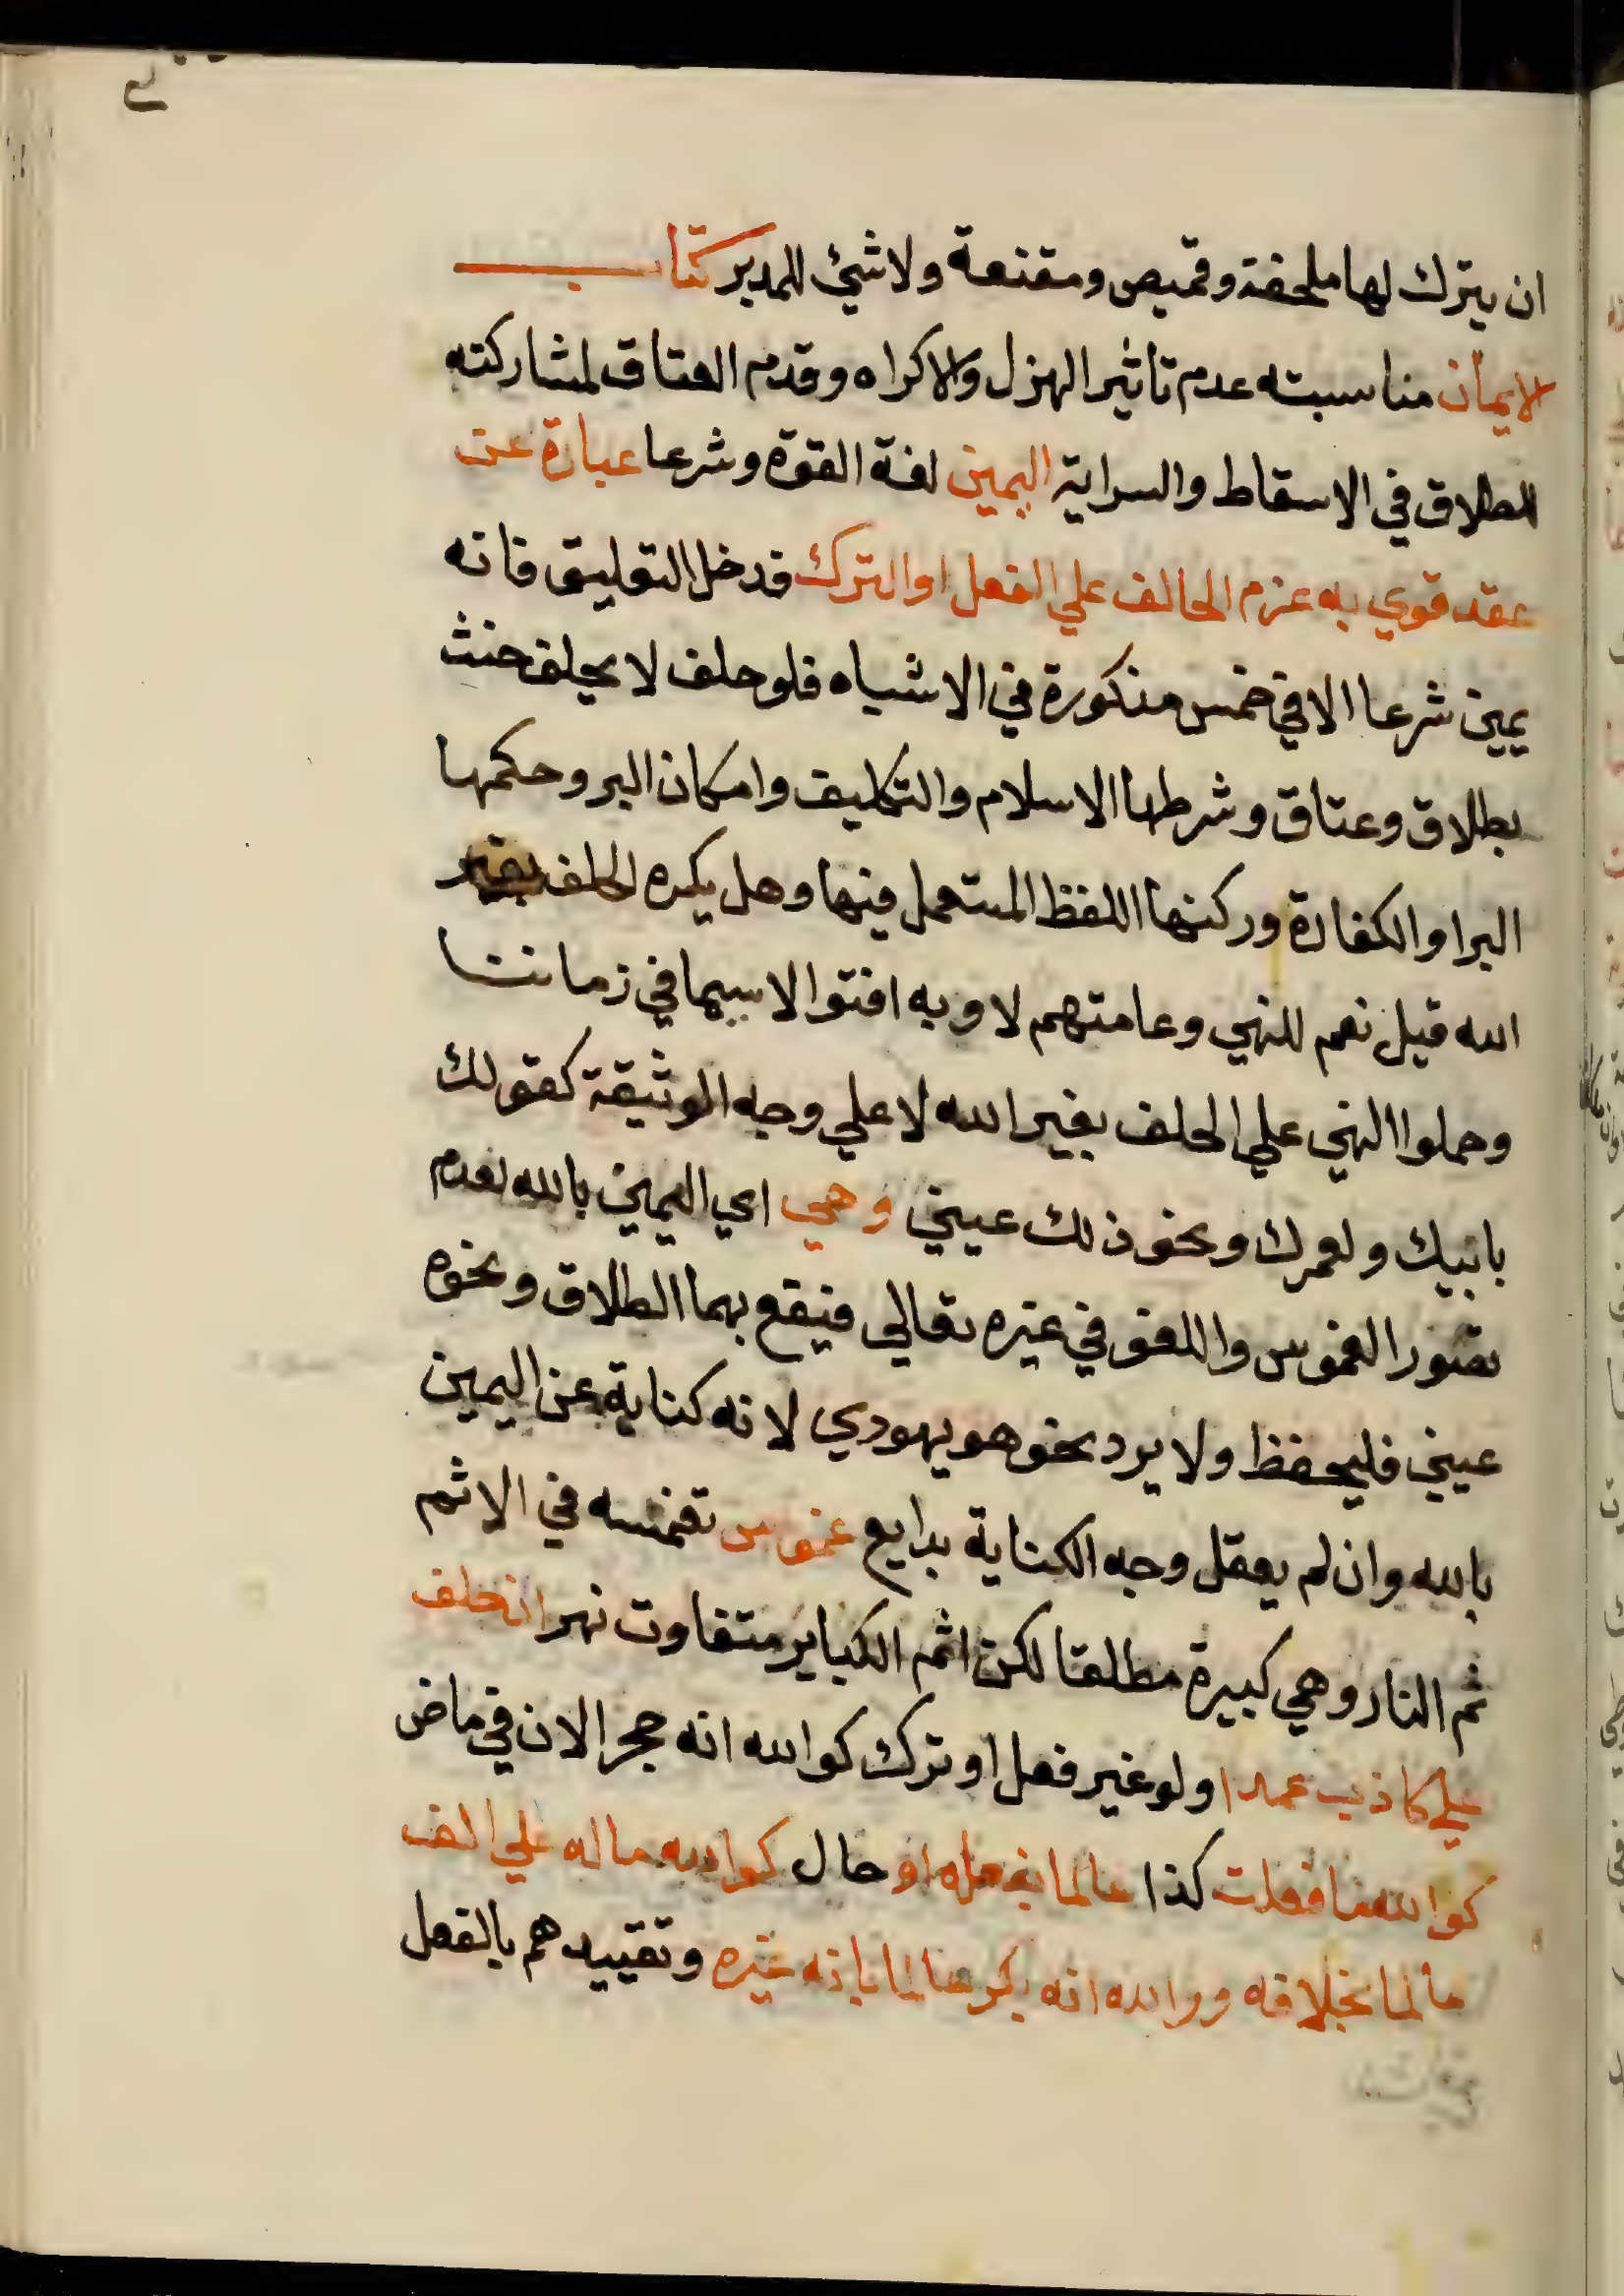 ان يترك لها ملحفة وقميص ومقنعة ولا شئ للمدبر كتاب
الايمان مناسبته عدم تاثير الهزل والاكراه وقدم العتاق لمشاركته
الطلاق في الاسقاط والسراية اليمين لغة القوة وشرعا عبارة عن
عقد قوي به عزم الحالف علي الفعل او الترك فدخل التعليق فانه
يمين شرعا الا في خمس مذكورة في الاشباه فلو حلف لا يحلف حنث
بطلاق وعتاق وشرطها الاسلام والتكليف وامكان البر وحكمها
البر او الكفارة وركنها اللفظ المستعمل فيها وهل يكره الحلف بغير
الله قيل نعم للنهي وعامتهم لا وبه افتوا لا سيما في زماننا
وحملوا النهي علي الحلف بغير الله لا علي وجه الوثيقة كقولك
بابيك ولعمرك ونحو ذلك عيني وهي اي اليمين بالله لعدم
تصور الغموس واللغو في غيره تعالي فيقع بهما الطلاق ونحوه
عيني فليحفظ ولا يرد نحو هو يهودي لانه كناية عن اليمين
بالله وان لم يعقل وجه الكناية بدايع غموس تغمسه في الاثم
ثم النار وهي كبيرة مطلقا لكن اثم الكباير متفاوت نهر ان حلف
علي كاذب عمدا ولو غير فعل او ترك كوالله انه حجر الان في ماض
كوالله ما فعلت كذا عالما بفعله او حال كوالله ماله علي الف
عالما بخلافه ووالله انه بكر عالما بانه غيره وتقييدهم بالفعل